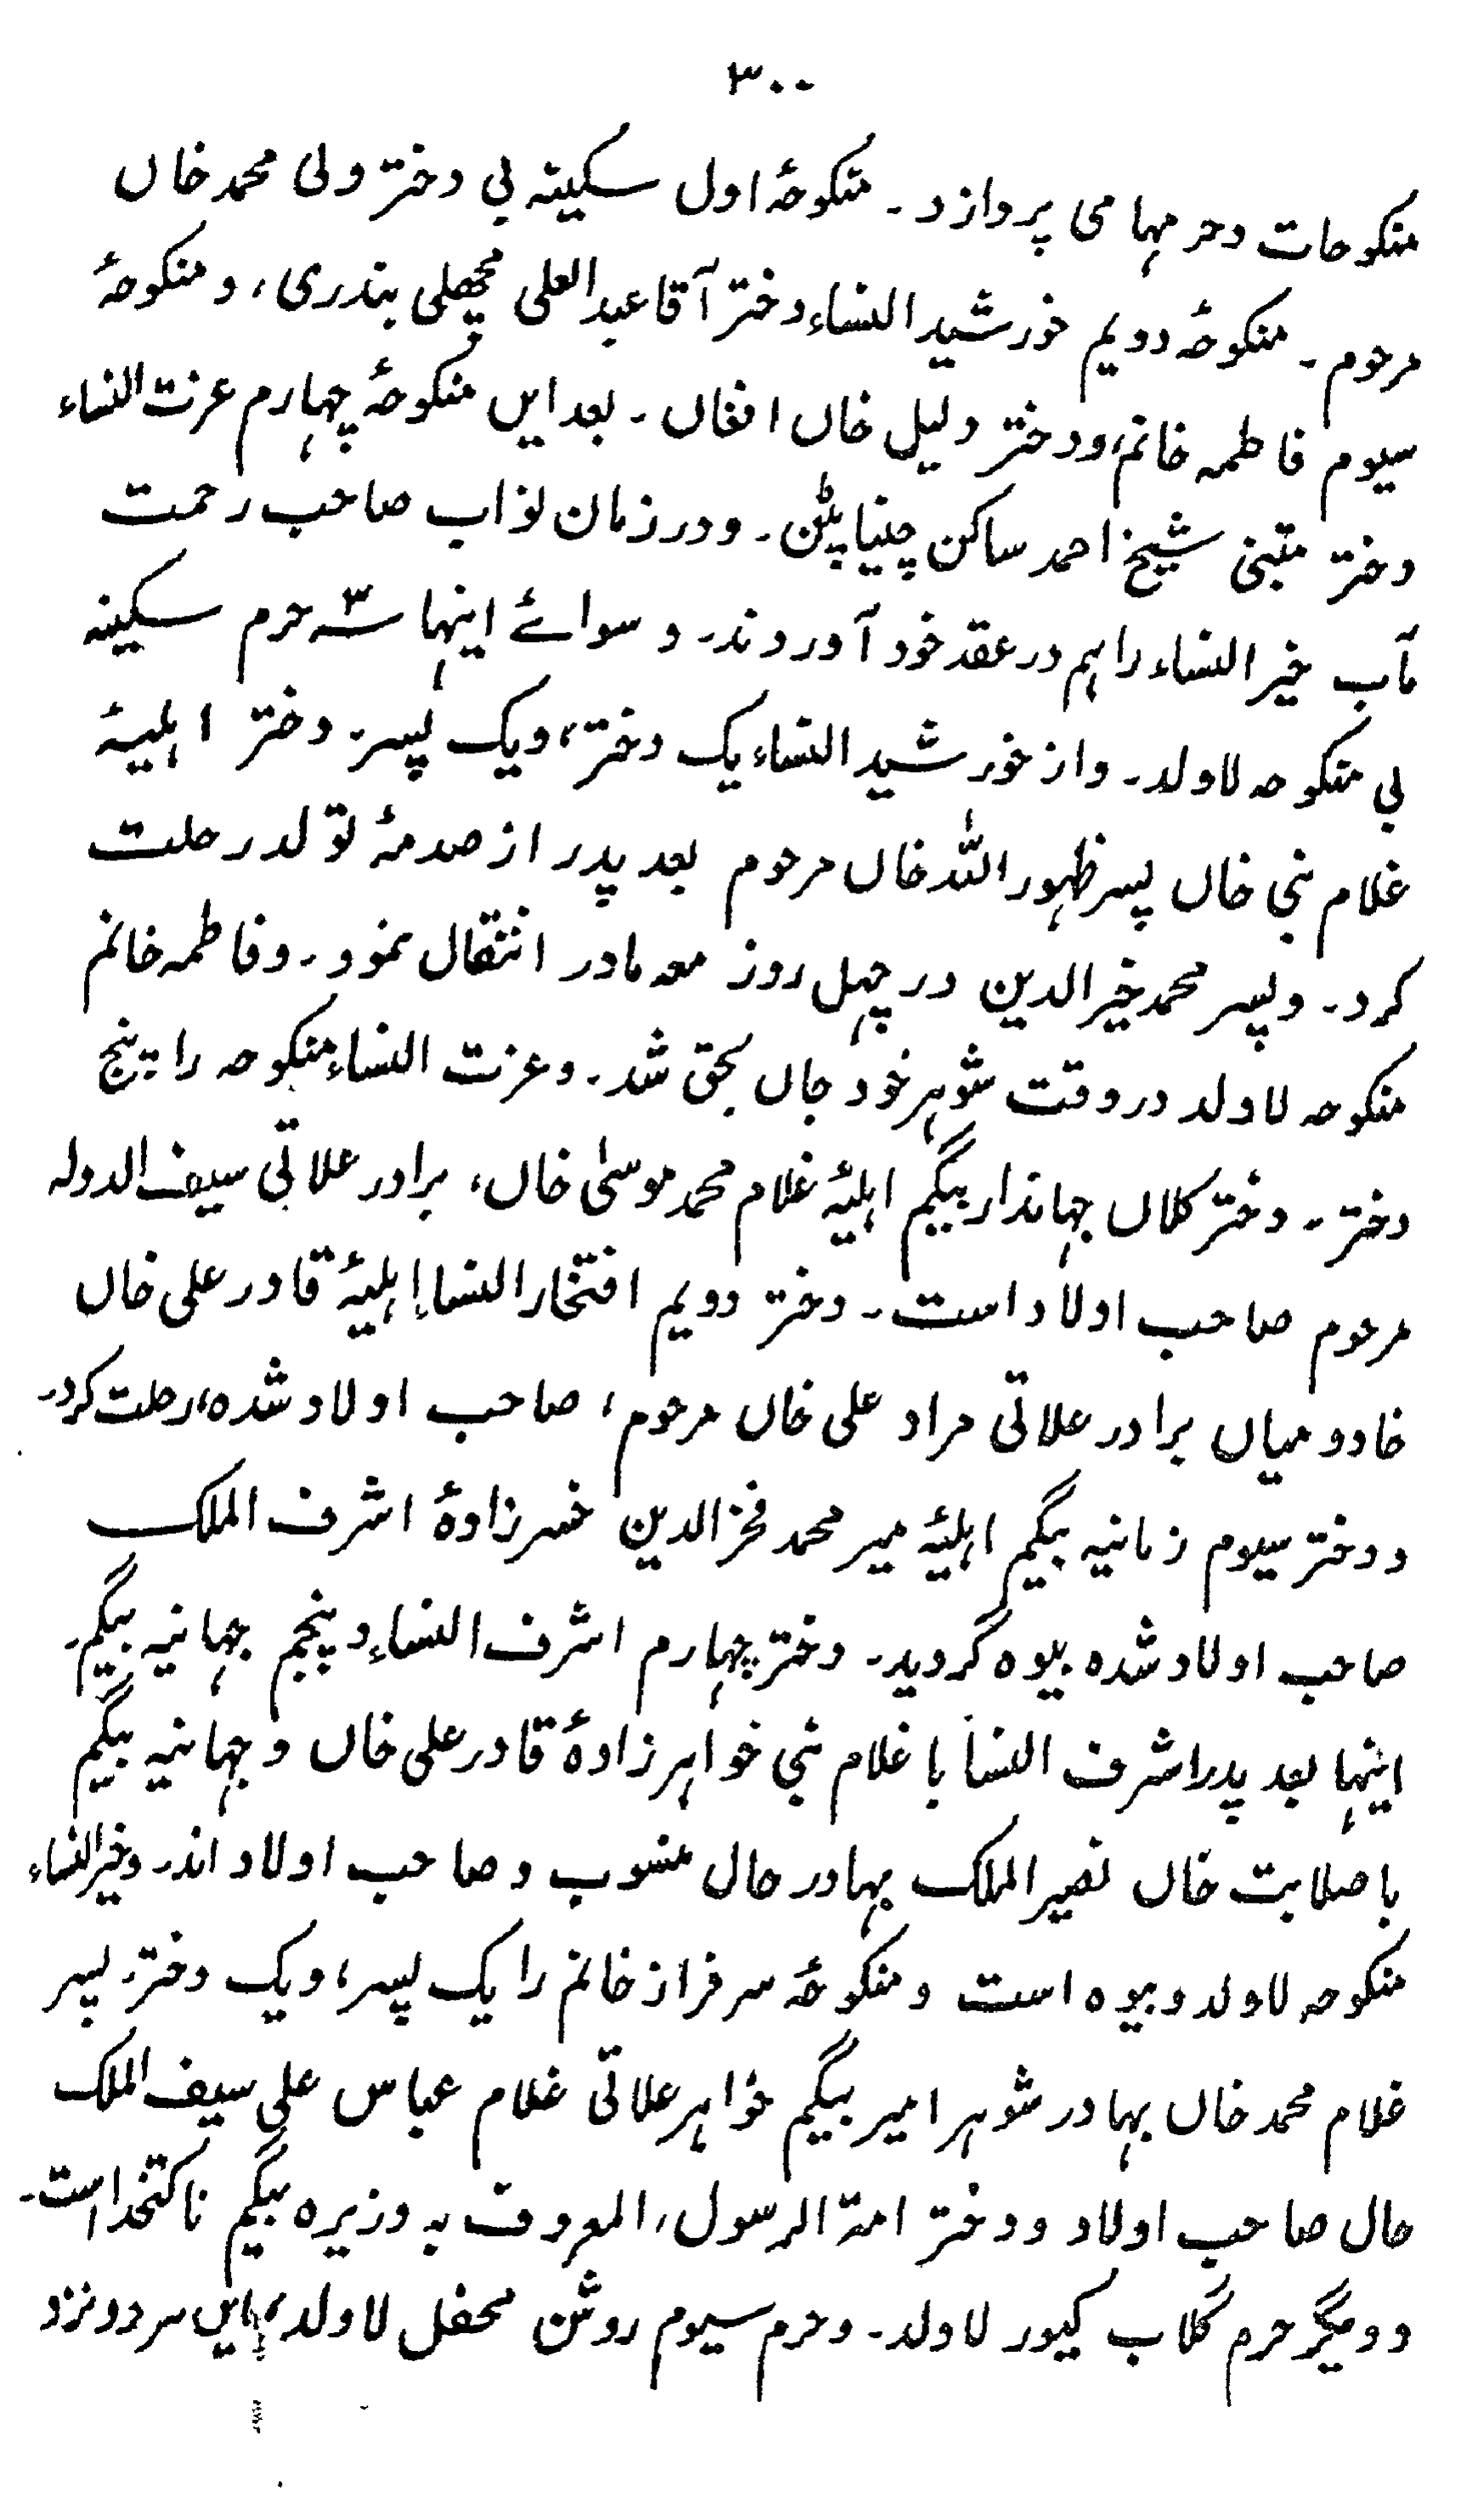 ۳۰۰
منکوحات و حرمہا می پردازد۔ منکوحۂ اول سکینہ بی دختر ولی محمد خاں
مرحوم۔ منکوحۂ دویم خورشید النساء دختر آقا عبد العلی مچھلی بندری، و منکوحۂ
سیوم فاطمہ خانم، و دختر دلیل خاں افغاں۔ بعد ایں منکوحۂ چہارم عزت النساء
دختر متبنی شیخ احمد ساکن چیناپٹن۔ و در زمان نواب صاحب رحمت
مآب خیر النساء را ہم در عقد خود آوردند۔ و سوائے اینہا سہ ۳ حرم سکینہ
بی منکوحہ لاولد۔ و از خورشید النساء یک دختر، و یک پسر۔ دختر اہلیۂ
غلام نبی خاں پسر ظہور اللہ خاں مرحوم بعد پدر از صدمۂ تولد رحلت
کرد۔ و پسر محمد خیر الدین در چہل روز معہ مادر انتقال نمود۔ و فاطمہ خانم
منکوحہ لاولد در وقت شوہر خود جاں بحق شد۔ و عزت النساء منکوحہ را پنج
دختر۔ دختر کلاں جہاندار بیگم اہلیۂ غلام محمد موسیٰ خاں، برادر علاتی سیف الدولہ
مرحوم صاحب اولاد است۔ دختر دویم افتخار النساء اہلیۂ قادر علی خاں
خادو میاں برادر علاتی مراد علی خاں مرحوم، صاحب اولاد شدہ، رحلت کرد۔
و دختر سیوم زمانیہ بیگم اہلیۂ میر محمد فخر الدین خسر زادۂ اشرف الملک
صاحب اولاد شدہ بیوہ گردید۔ دختر چہارم اشرف النساء و پنجم جہانیہ بیگم۔
اینہا بعد پدر اشرف النساء با غلام نبی خواہر زادۂ قادر علی خاں و جہانیہ بیگم
با صلابت خاں نصیر الملک بہادر حال منسوب و صاحب اولاد اند۔ و خیر النساء
منکوحہ لاولد و بیوہ است و منکوحۂ سرفراز خانم را یک پسر، و یک دختر۔ پسر
غلام محمد خاں بہادر شوہر امیر بیگم خواہر علاتی غلام عباس علی سیف الملک
حال صاحب اولاد و دختر امۃ الرسول، المعروف بہ وزیرہ بیگم ناکتخدا است۔
و دیگر حرم گلاب کیور لاولد۔ و حرم سیوم روشن محفل لاولد، ایں ہر دو نزد